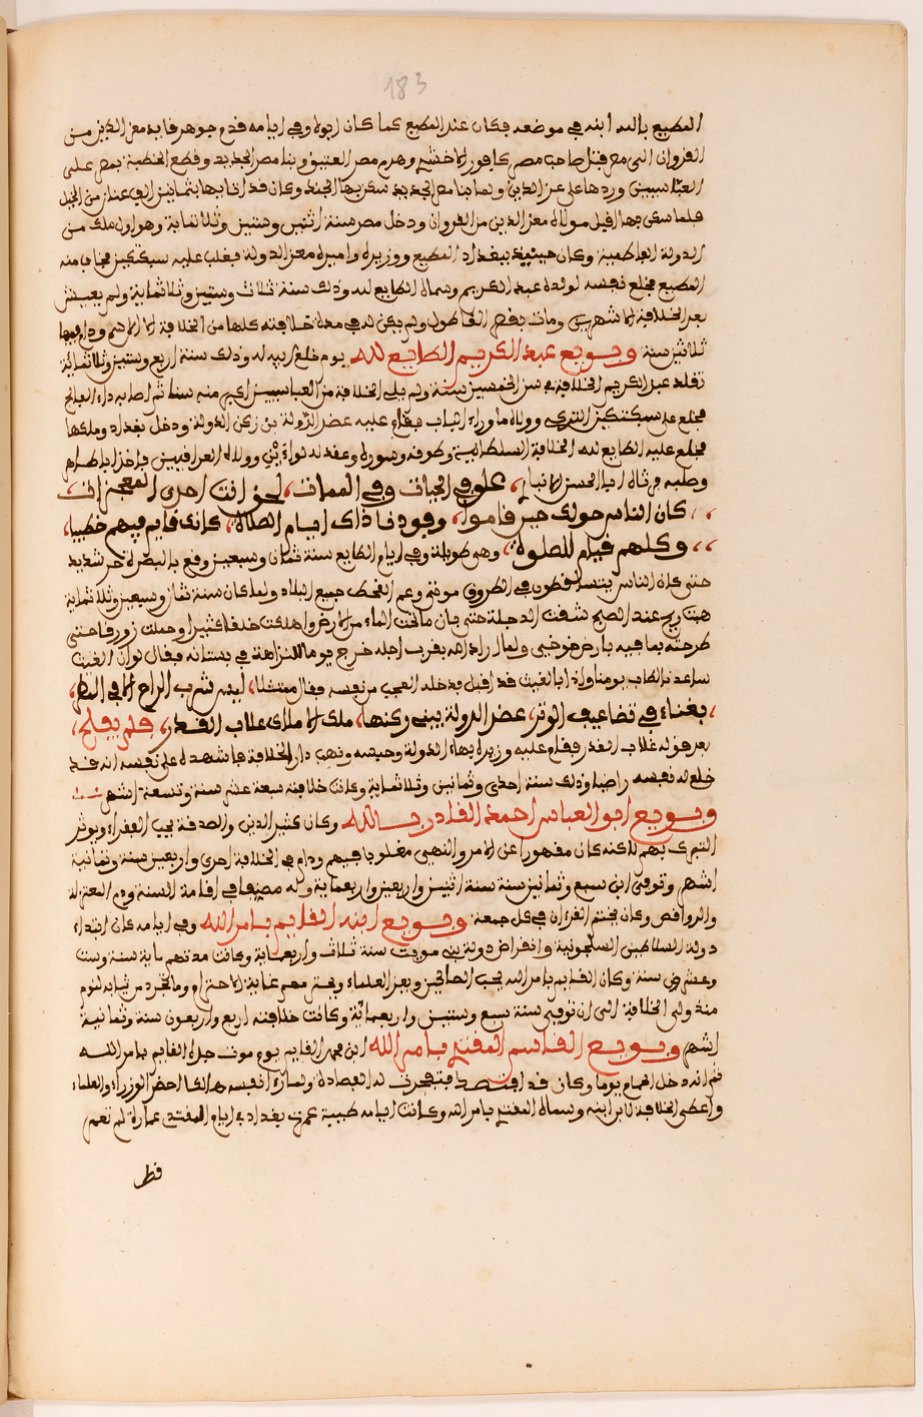 183
المطيع بالله ابنه في موضعه فكان عند المطيع كما كان ابوه وفي ايامه قدم جوهر قايد معز الدين من
القروان الى مصر قبل صاحب مصر كافور الاخشيد وهدم مصر العتيق وبنا مصر الجديد وقطع الخطبة بمصر على
العباسيين وردها على عز الدين ولما بنا مصر الجديد سكن بها الجند وكان قد اتا بها بثمانين الف عنان من الخيل
فلما سمى بها اقبل مولاه معز الدين من القروان ودخل مصر سنة اثنين وستين وثلاثماية وهو اول ملك من
الدولة الفاطمية وكان حينيذ ببغداد المطيع ووزيره واميره معز الدولة فغلب عليه سبكتكين فخاف منه
المطيع فخلع نفسه لولده عبد الكريم وسماه الطايع لله وذلك سنة ثلاث وستين وثلاثماية ولم يعيش
بعد الخلافة الا شهرين ومات بقصر ولم يكن له في مدة خلافته كلها من الخلافة الا الاسم ودام فيها
ثلاثين سنة وبويع عبد الكريم الطايع لله يوم خلع ابيه له وذلك سنة اربع وستين وثلاثماية
تقلد عبد الكريم الخلافة في سن الخمسين سنة ولم يلي الخلافة من العباسيين اكبر منه سنا ثم اصابه داء الفالج
فخلع على سبكتكين التركي وولاه ما وراء الباب فقام عليه عضد الدولة بن ركن الدولة ودخل بغداد وملكها
فخلع عليه الطايع لله الخلافة السلطانية وطوقه وسوره وعقد له لوائين وولاه العراقيين
وصلبه ابا الحسن الانبار علو في الحيات وفي الممات، لحق انت احدى المعجزات
كان الناس حولك حين قاموا، وفود نداك ايام الصلاة، كانك قايم فيهم خطيبا،
وكلهم قيام للصلوة، وهي طويلة وفي ايام الطايع سنة ثمان وسبعين وقع بالبصرة حر شديد
حتى كان الناس يتساقطون في الطروق موتى وعم القحط جميع البلاد ولما كان سنة ثمان وسبعين وثلاثماية
هبت ريح عند الصبح شقت الدجلة حتى بان ما تحت الماء من الارض واهلكت خلقا كثيرا وحملت زورقا حتى
طرحته بما فيه بارض خوخى ولما اراد الله بقرب اجله خرج يوما للنزاهة في بستانه فقال لو ان الغيث
ساعدنا لطاب يومنا واذا بالغيث قد اقبل فدخله العجب من نفسه فقال متمثلا، ليس شرب الراح الا في المطر،
بغناء في تضاعيف الوتر، عضد الدولة يبنى ركنها، ملك الاملاك غلاب القدر، فلم يفلح،
بعد قوله غلاب القدر فقام عليه وزيره بهاء الدولة وحبسه ونهب دار الخلافة فاشهده على نفسه انه قد
خلع له نفسه راضيا وذلك سنة احدى وثمانين وثلاثماية وكانت خلافته سبعة عشر سنة وتسعة اشهر
وبويع ابو العباس احمد القادر بالله وكان كثير الدين والصدقة يحب الفقراء ويوثر
التبرك بهم لاكنه كان مقهورا عن الامر والنهي مغلوبا فيهم ودام في الخلافة احدى واربعين سنة وثمانية
اشهر وتوفى ابن سبع وثمانين سنة سنة اثنين واربعين واربعماية وله مصنفا في اقامة السنة وذم المعتزلة
والروافض وكان يختم القرءان في كل جمعة وبويع ابنه القايم بامر الله وفي ايامه كان ابتداء
دولة السلاطين السلجونية وانقراض دولة بني بويت سنة ثلاث واربعماية وكانت مدتهم ماية سنة وست
وعشرين سنة وكان القايم بامر الله يحب الصالحين ويعز العلماء ويحترمهم غاية الاحترام وما تجرد من ثيابه لنوم
منذ ولى الخلافة الى ان توفى سنة سبع وستين واربعماية وكانت خلافته اربع واربعون سنة وثمانية
اشهر وبويع القاسم المقتد بامر الله ابن محمد القايم يوم موت جده القايم بامر الله
ثم انه دخل الحمام يوما وكان قد افتصد فتفجرت له الفصادة ولما راء نفسه هالكا احضر الوزراء والعلماء
واعطى الخلافة لابن ابنه وسماه المقتد بامر الله وكانت ايامه طيبة عمرت بغداد في ايام المقتد عمارة لم تعمر
قط